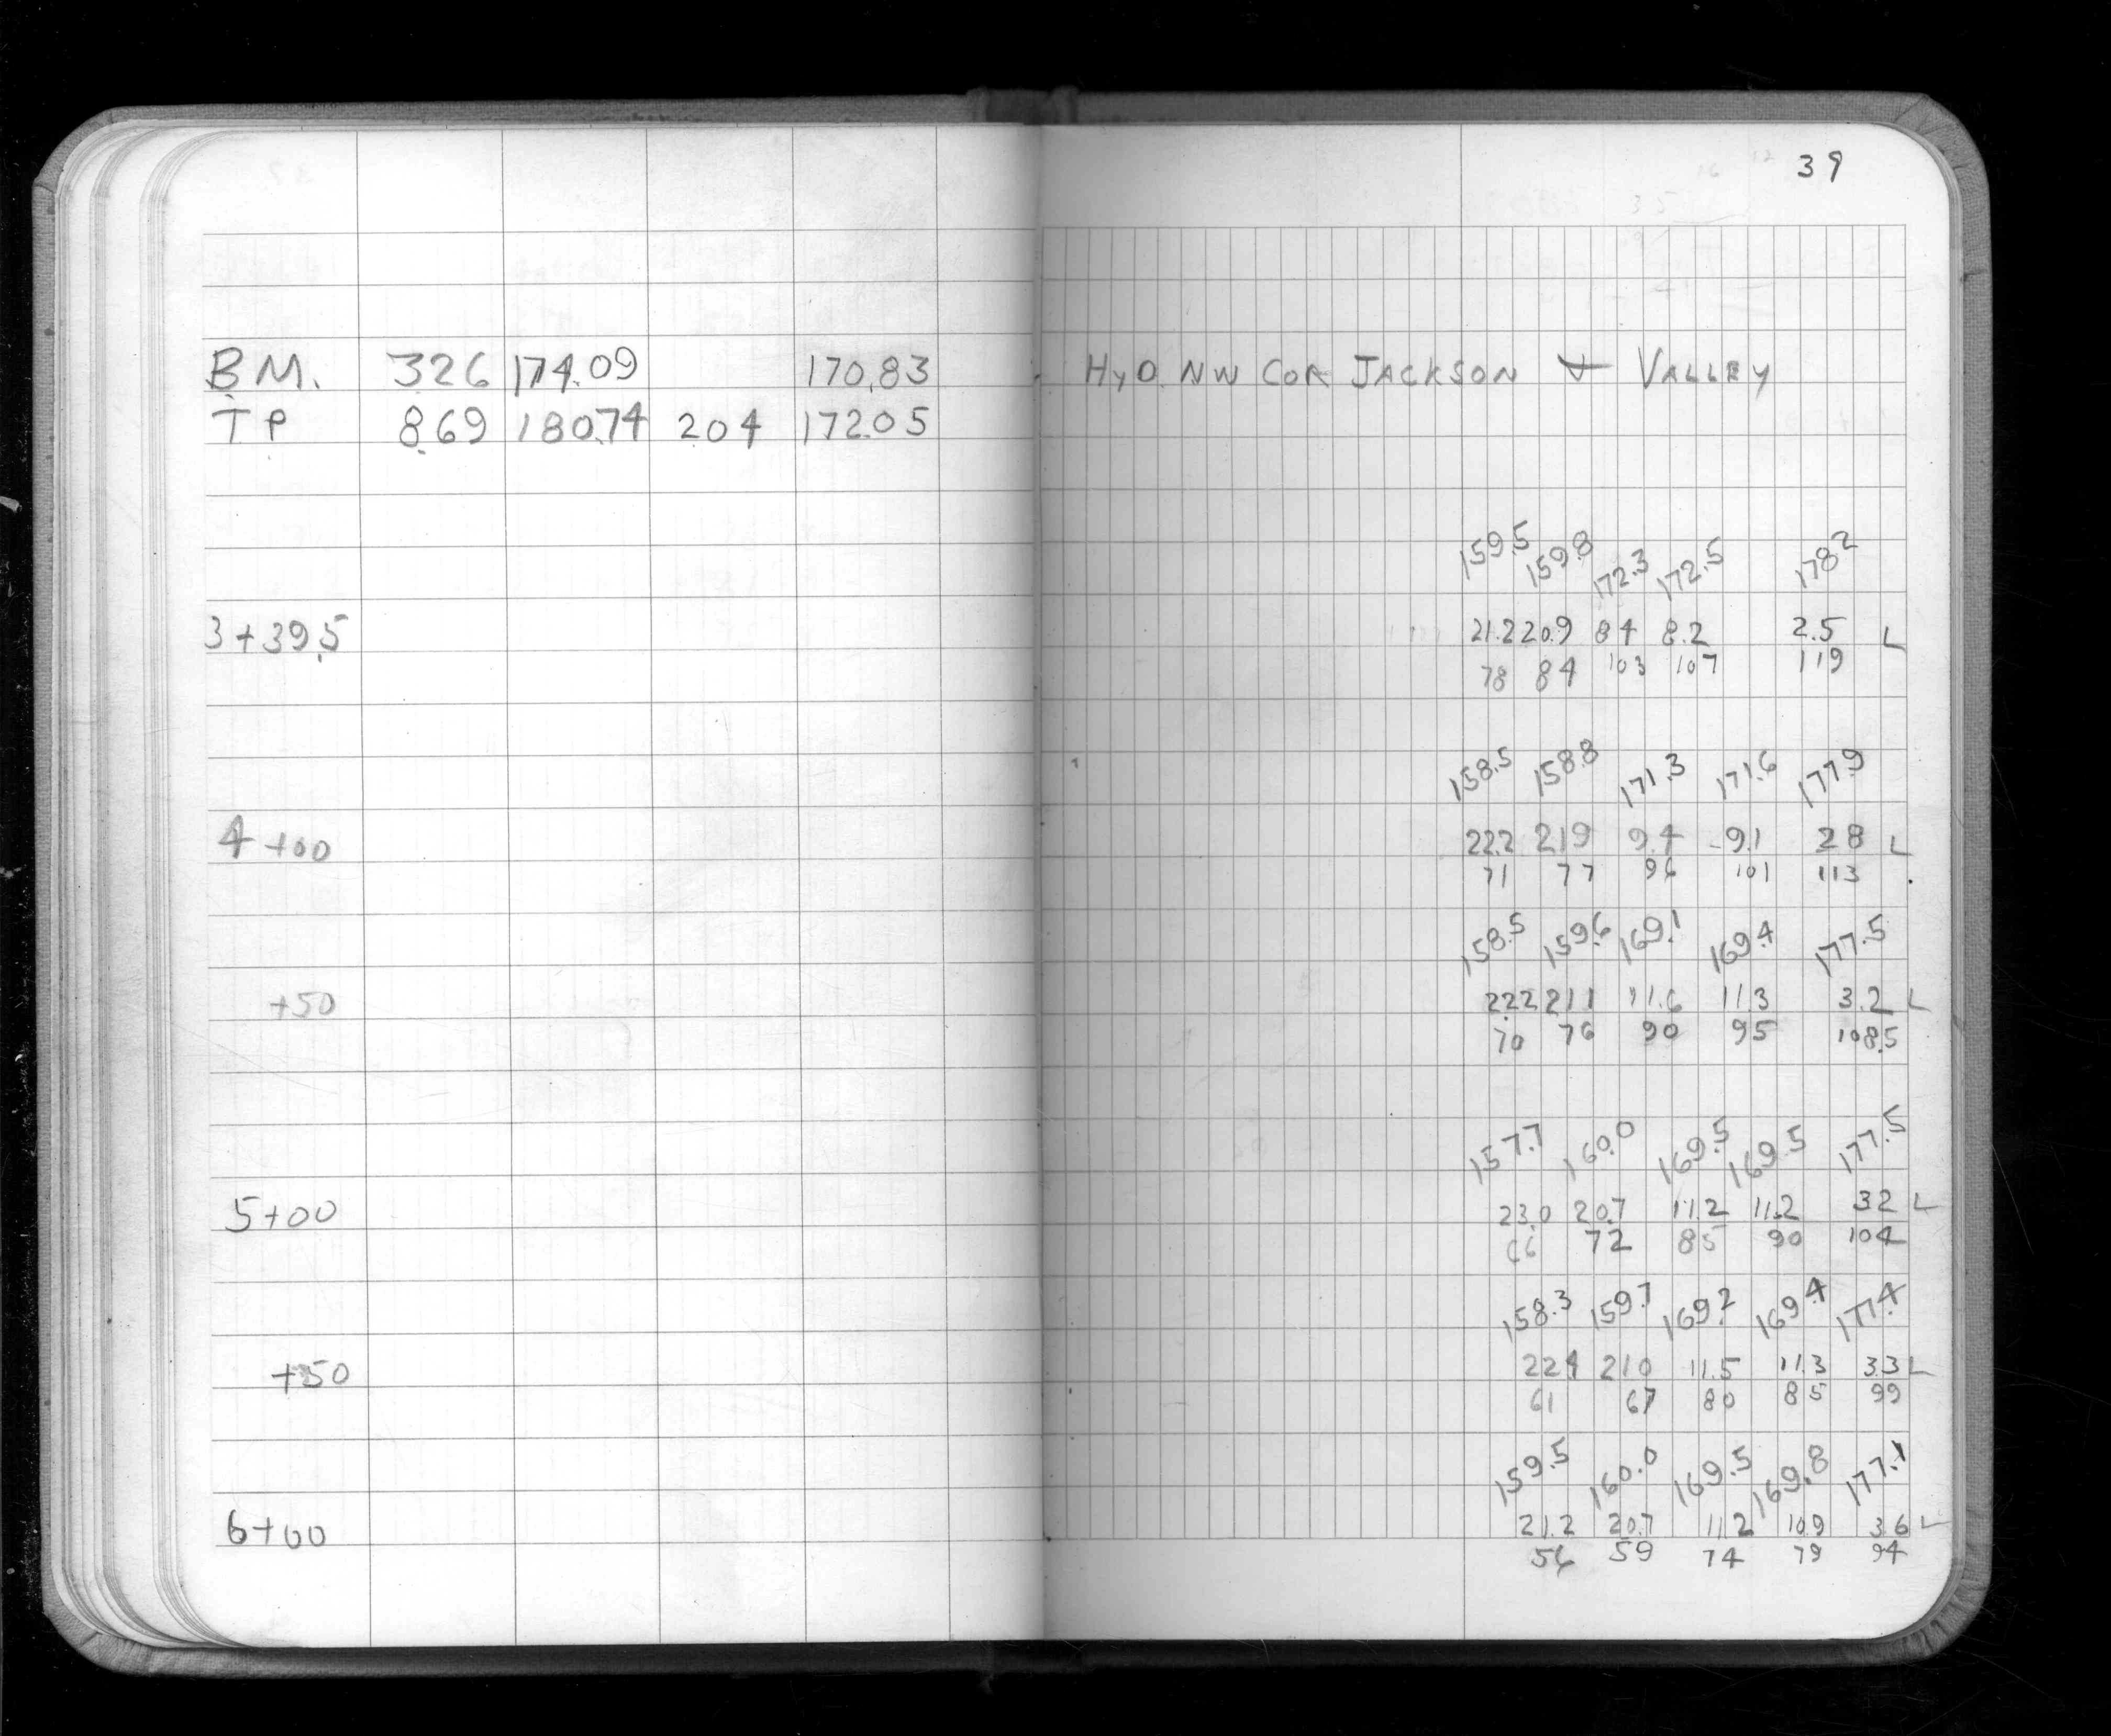 39
BM. 3.26 174.09 170.83 HyD. NW COR JACKSON & VALLEY
TP 8.69 180.74 2.04 172.05
159.5 159.8 172.3 172.5 178.2
3+39.5 21.2 20.9 84 8.2 2.5 L
78 84 103 107 119
158.5 158.8 171.3 171.6 177.9
4+00 22.2 219 9.4 9.1 28 L
71 77 96 101 113
158.5 159.6 169.1 169.4 177.5
+50 22.2 211 11.6 113 3.2 L
70 76 90 95 108.5
157.7 160.0 169.5 169.5 177.5
5+00 23.0 20.7 11.2 11.2 32 L
66 72 85 90 104
158.3 159.7 169.2 169.4 177.4
+50 224 210 11.5 11.3 3.3 L
61 67 80 85 99
159.5 160.0 169.5 169.8 177.1
6+00 21.2 20.7 11.2 10.9 3.6 L
56 59 74 79 94